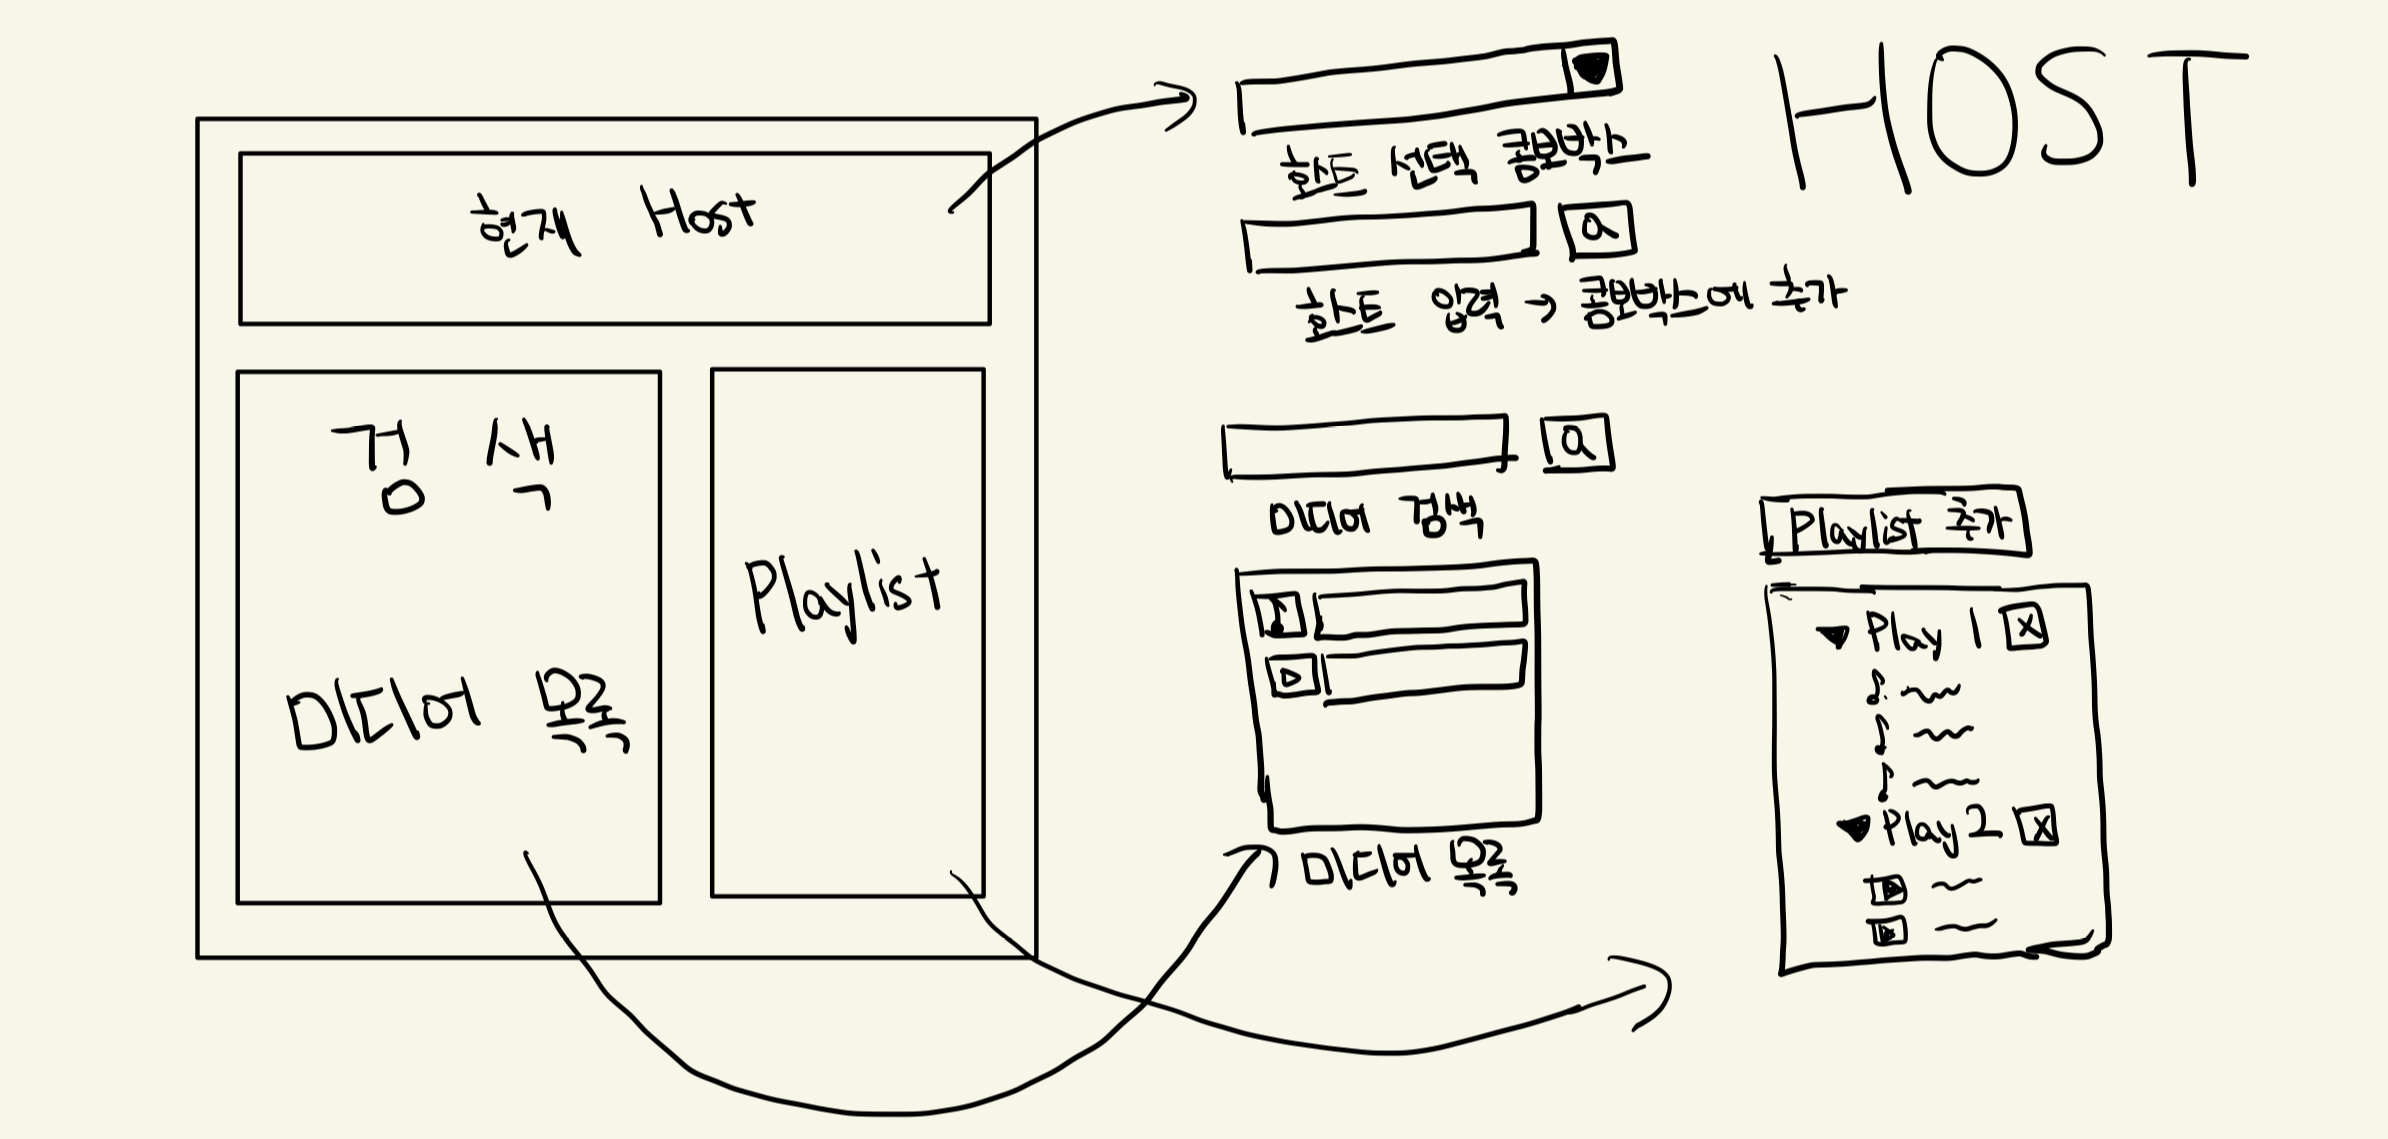 HOST
현재 Host
검색
미디어 목록
Playlist
호스트 선택 콤보박스
호스트 입력 → 콤보박스에 추가
미디어 검색
미디어 목록
Playlist 추가
Play 1 X
Play 2 X